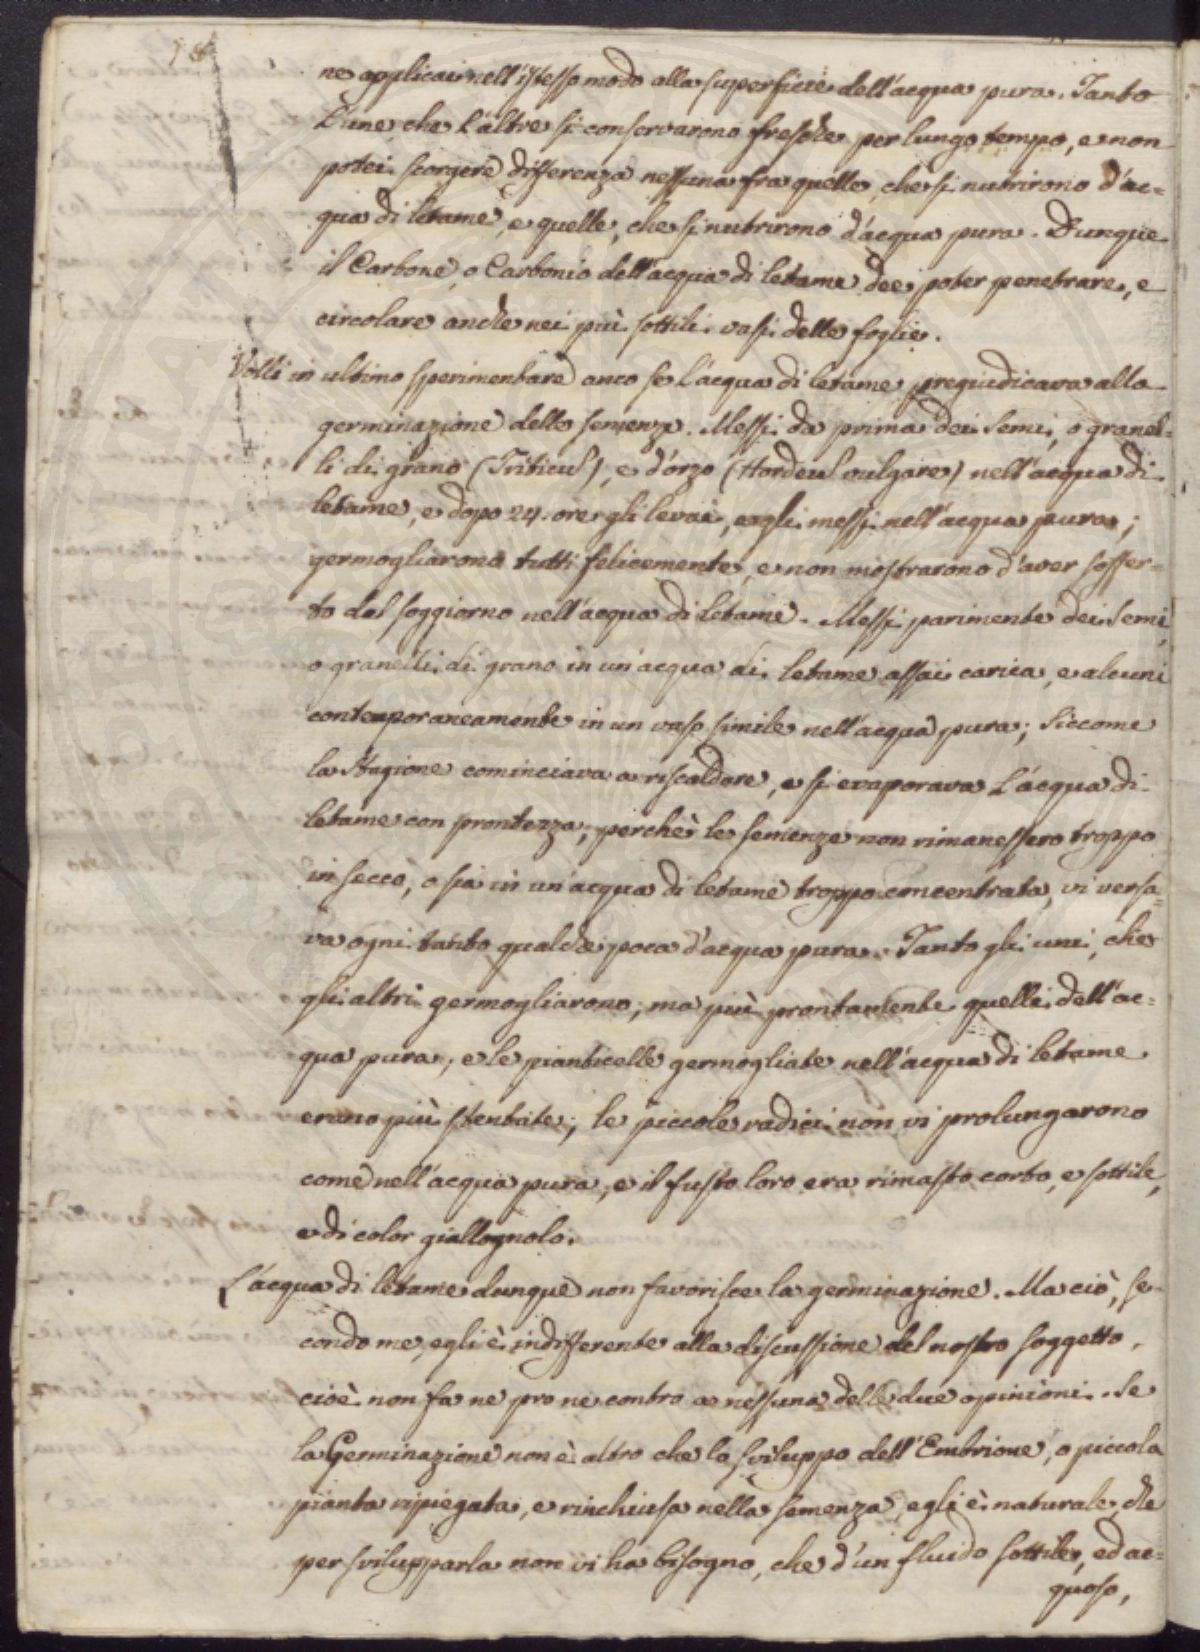 ne applicai nell'istesso modo alla superficie dell'acqua pura. Tanto
l'une che l'altre si conservarono fresche per lungo tempo, e non
potei scorgere differenza nessuna fra quelle, che si nutrirono d'ac=
qua di letame, e quelle, che si nutrirono d'acqua pura. Dunque
il Carbone, o Carbonio dell'acqua di letame dee poter penetrare, e
circolare anche nei più sottili vasi delle foglie.
Volli in ultimo sperimentare anco se l'acqua di letame pregiudicava alla
germinazione delle semenze. Messi da prima dei semi, o granel=
li di grano (Triticu), e d'orzo (Hordeu vulgare) nell'acqua di
letame, e dopo 24. ore gli levai, e gli messi nell'acqua pura;
germogliarono tutti felicemente, e non mostrarono d'aver soffer=
to dal soggiorno nell'acqua di letame. Messi parimente dei semi,
o granelli di grano in un'acqua di letame assai carica, e alcuni
contemporaneamente in un vaso simile nell'acqua pura; siccome
la stagione cominciava a riscaldare, e si evaporava l'acqua di
letame con prontezza; perchè le semenze non rimanessero troppo
in secco, o sia in un'acqua di letame troppo concentrata, vi versa=
va ogni tanto qualche poca d'acqua pura. Tanto gli uni, che
gli altri germogliarono; ma più prontamente quelli dell'ac=
qua pura; e le pianticelle germogliate nell'acqua di letame
erano più stentate; le piccole radici non vi prolungarono
come nell'acqua pura, e il fusto loro era rimasto corto, e sottile,
e di color giallognolo.
L'acqua di letame dunque non favorisce la germinazione. Ma ciò, se=
condo me, egli è indifferente alla discussione del nostro soggetto,
cioè non fa ne pro ne contro a nessuna delle due opinioni. Se
la Germinazione non è altro che lo sviluppo dell'Embrione, o piccola
pianta ripiegata, e rinchiusa nella semenza, egli è naturale, che
per svilupparla non vi ha bisogno, che d'un fluido sottile, ed ac=
quoso,